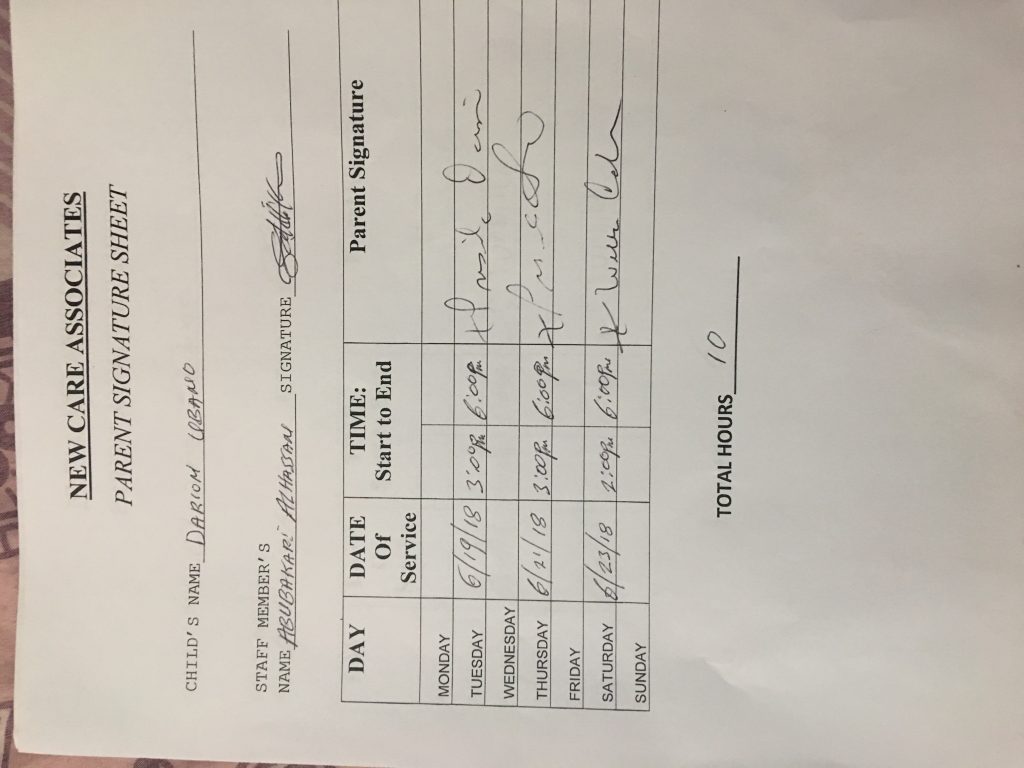 NEW CARE ASSOCIATES
PARENT SIGNATURE SHEET
CHILD'S NAME DARIOM URBANO
STAFF MEMBER'S
NAME ABUBAKARI ALHASSAN SIGNATURE
DAY DATE Of Service TIME: Start to End Parent Signature
MONDAY
TUESDAY 6/19/18 3:00Pm 6:00Pm
WEDNESDAY
THURSDAY 6/21/18 3:00Pm 6:00Pm
FRIDAY
SATURDAY 6/23/18 2:00Pm 6:00Pm
SUNDAY
TOTAL HOURS 10